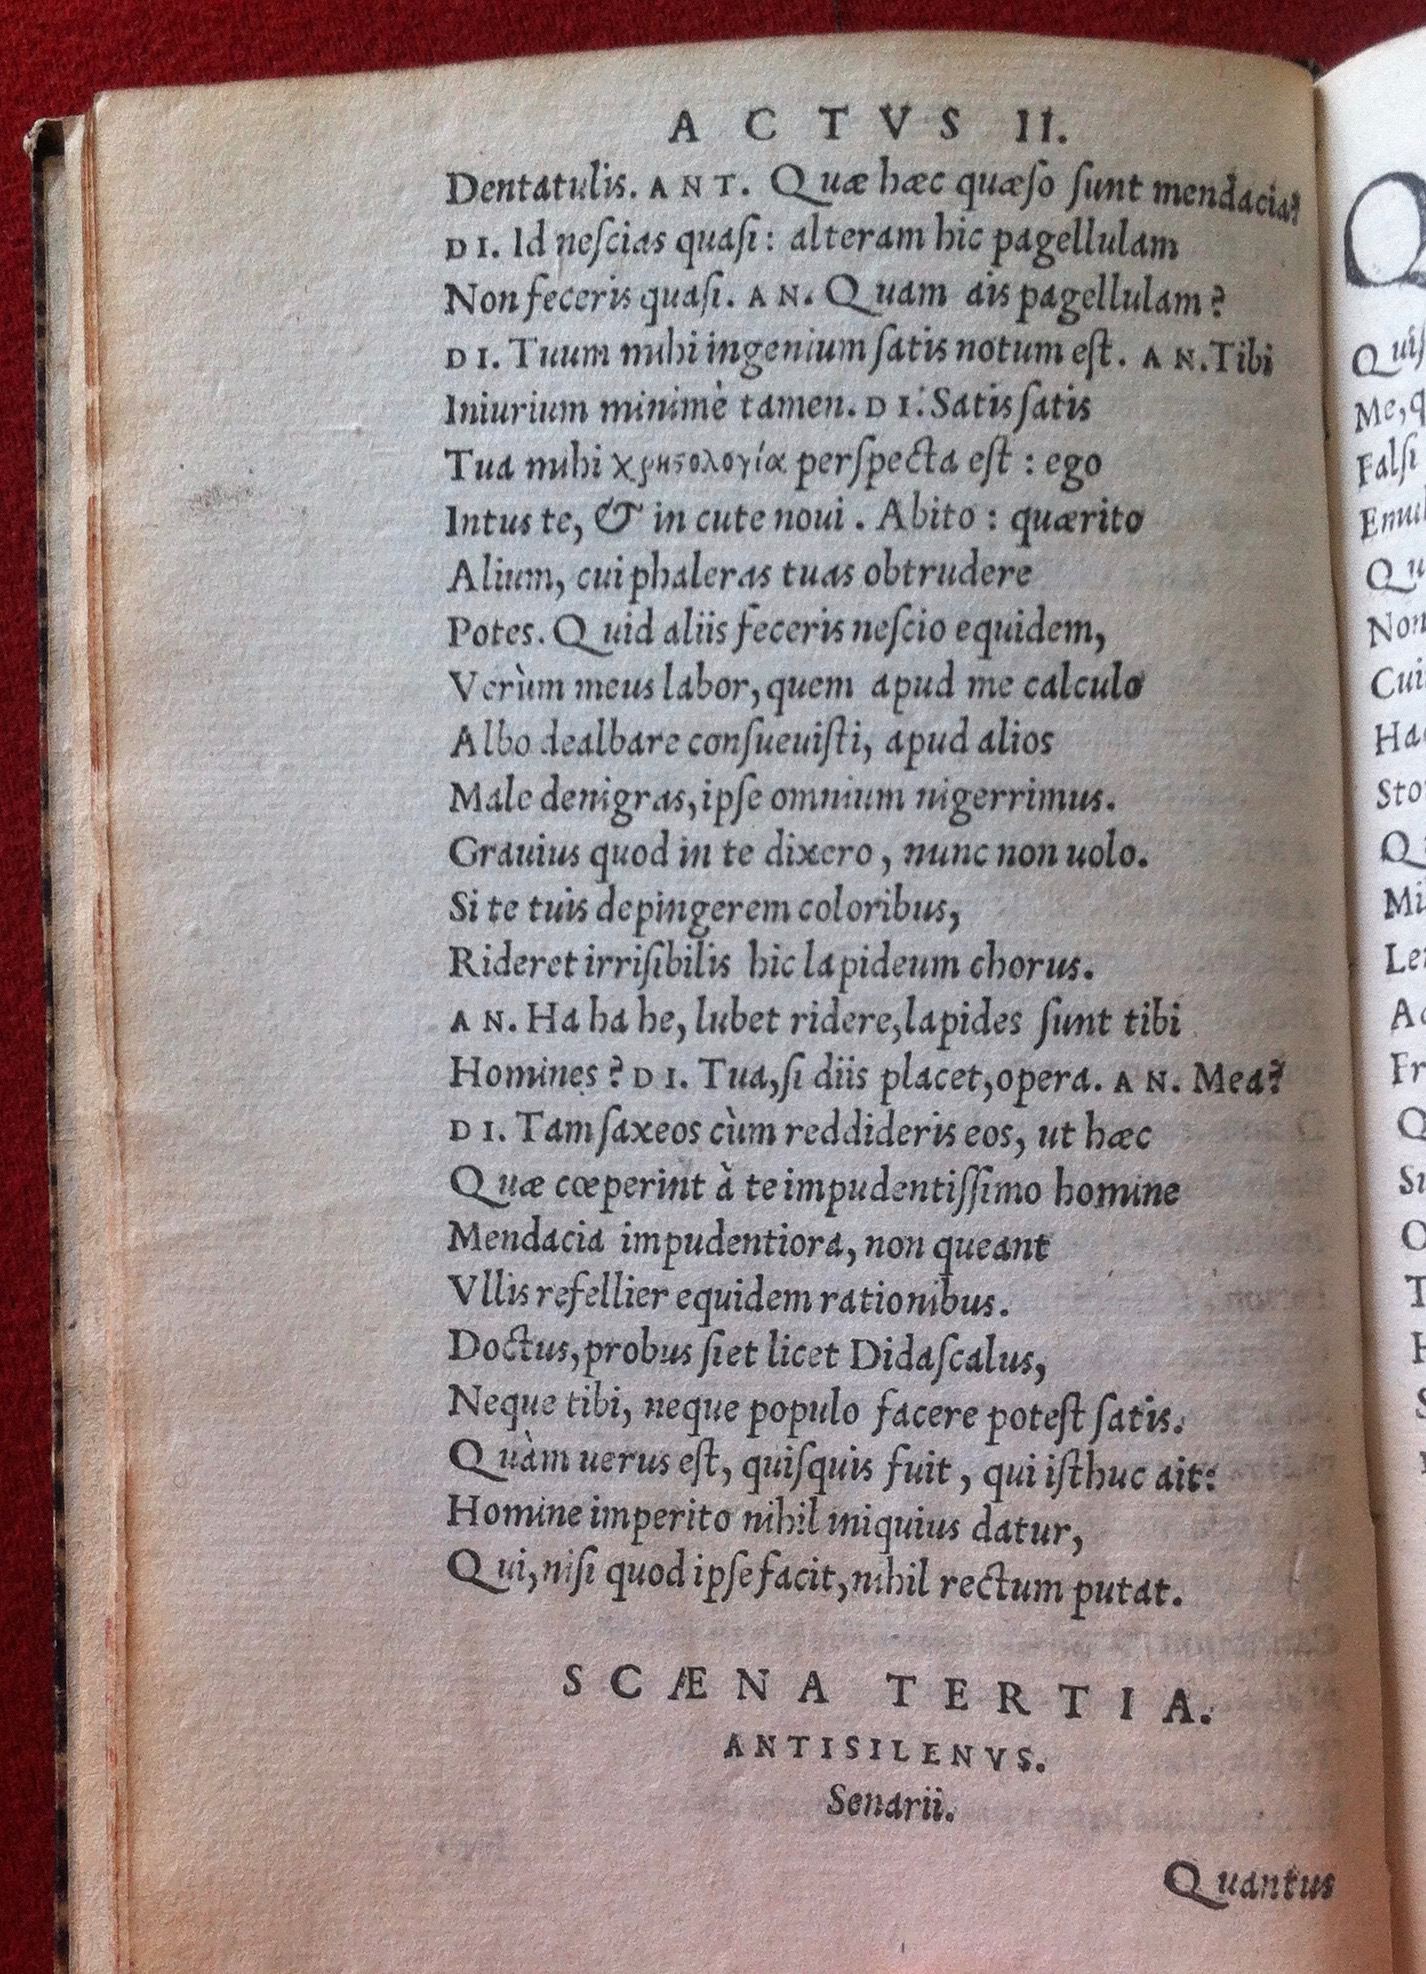 ACTVS II.
Dentatulis. ANT. Quæ hæc quæſo ſunt mendacia?
DI. Id neſcias quaſi: alteram hic pagellulam
Non feceris quaſi. AN. Quam ais pagellulam?
DI. Tuum mihi ingenium ſatis notum eſt. AN. Tibi
Iniurium minimè tamen. DI. Satis ſatis
Tua mihi χρηστολογία perſpecta eſt: ego
Intus te, & in cute noui. Abito: quærito
Alium, cui phaleras tuas obtrudere
Potes. Quid aliis feceris neſcio equidem,
Verùm meus labor, quem apud me calculo
Albo dealbare conſueuiſti, apud alios
Male denigras, ipſe omnium nigerrimus.
Grauius quod in te dixero, nunc non uolo.
Si te tuis depingerem coloribus,
Rideret irriſibilis hic lapideum chorus.
AN. Ha ha he, lubet ridere, lapides ſunt tibi
Homines? DI. Tua, ſi diis placet, opera. AN. Mea?
DI. Tam ſaxeos cùm reddideris eos, ut hæc
Quæ cœperint à te impudentiſſimo homine
Mendacia impudentiora, non queant
Vllis refellier equidem rationibus.
Doctus, probus ſiet licet Didaſcalus,
Neque tibi, neque populo facere poteſt ſatis.
Quàm uerus eſt, quiſquis fuit, qui iſthuc ait:
Homine imperito nihil iniquius datur,
Qui, niſi quod ipſe facit, nihil rectum putat.
SCÆNA TERTIA.
ANTISILENVS.
Senarii.
Quantus
Q
Me, q
Falſi
Qu
Non
Cui
Sto
Mi